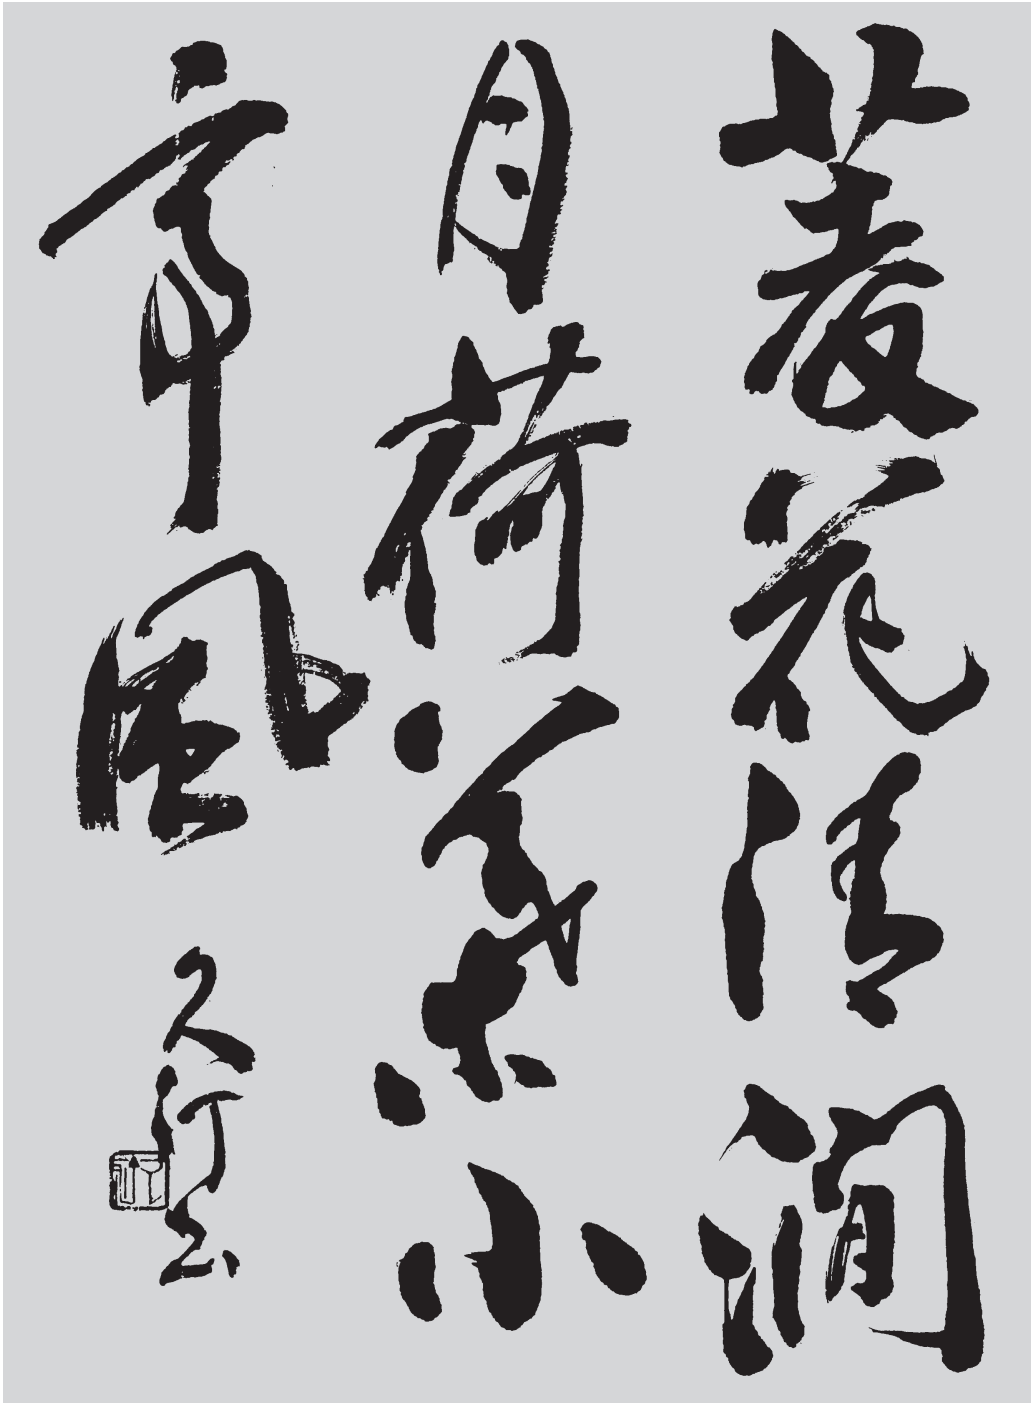 菱花清澗
月荷葉小
亭風
久行書